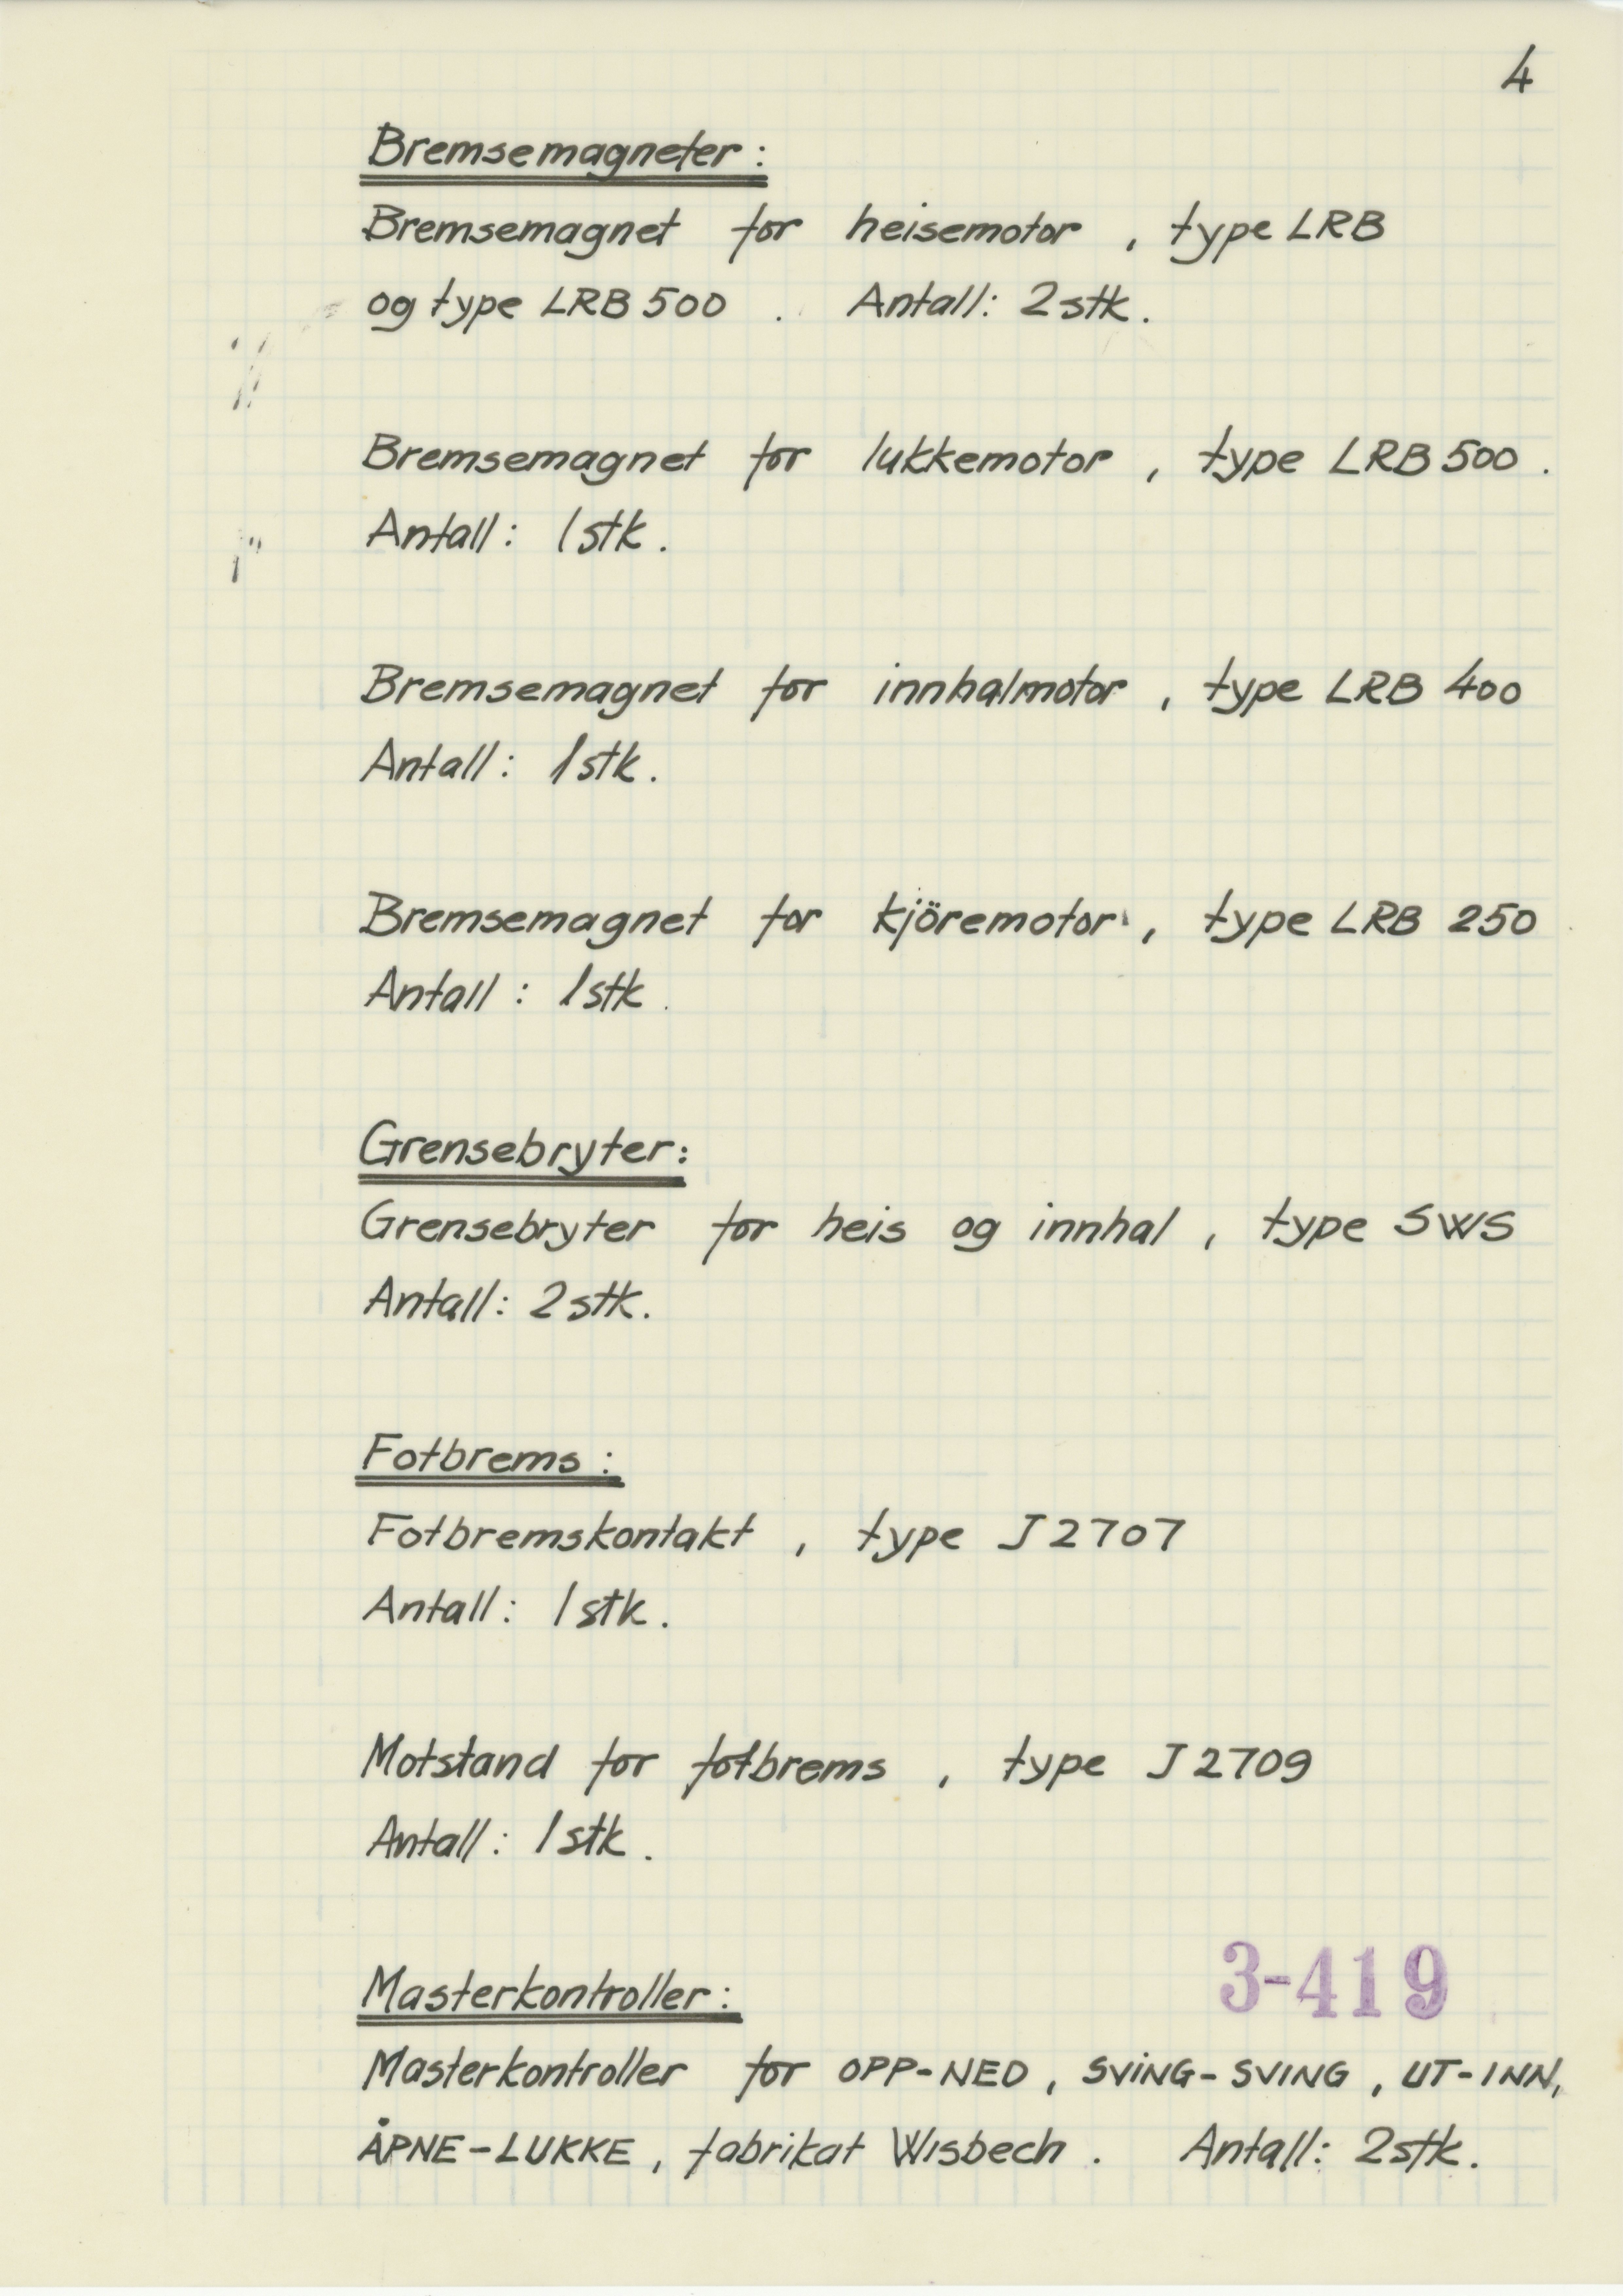 4
Bremsemagneter:
Bremsemagnet for heisemotor, type LRB
og type LRB 500. Antall: 2 stk.
Bremsemagnet for lukkemotor, type LRB 500.
Antall: 1 stk.
Bremsemagnet for innhalmotor, type LRB 400
Antall: 1 stk.
Bremsemagnet for kjöremotor, type LRB 250
Antall: 1 stk.
Grensebryter:
Grensebryter for heis og innhal, type SWS
Antall: 2 stk.
Fotbrems:
Fotbremskontakt, type J 2707
Antall: 1 stk.
Motstand for fotbrems, type J 2709
Antall: 1 stk.
3-419
Masterkontroller:
Masterkontroller for OPP-NED, SVING-SVING, UT-INN,
ÅPNE-LUKKE, fabrikat Wisbech. Antall: 2 stk.